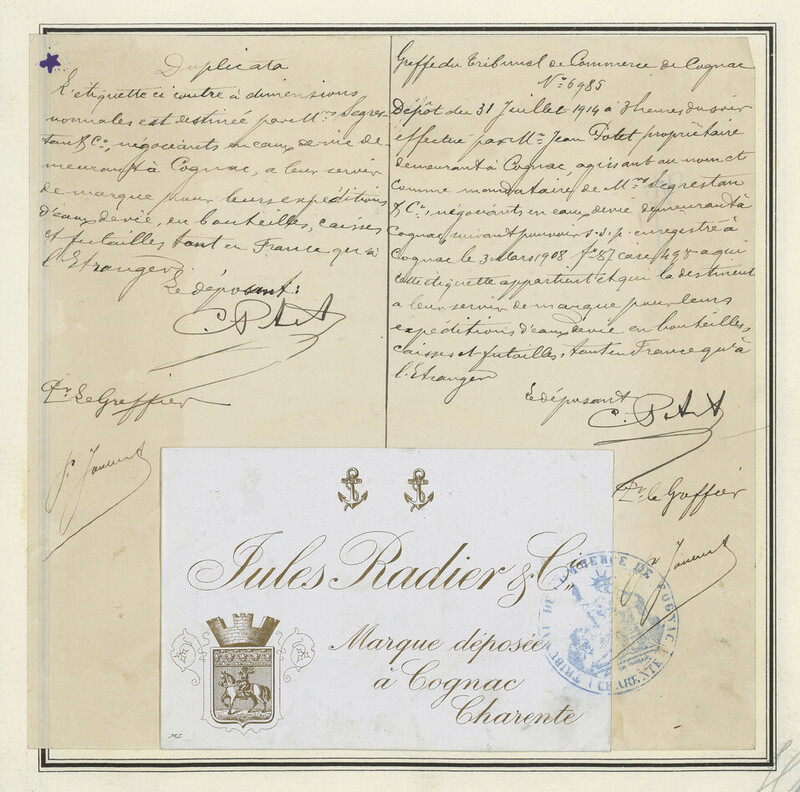 Duplicata
L'etiquette ci contre à dimensions
normales est destinée par Mrs Segres-
tan & Co, négociants en eaux de vie de-
meurant à Cognac, a leur servir
de marque pour leurs expéditions
d'eaux de vie, en bouteilles, caisses
et futailles tant en France qu'à
l'Etranger
Le déposant:
Pr Le Greffier
Greffe du Tribunal de Commerce de Cognac
No 6985
Dépôt du 31 Juillet 1914 à 3 heures du soir
effectué par Mr Jean Potet propriétaire
demeurant à Cognac, agissant au nom et
comme mandataire de Mrs Segrestan
& Co, négociants en eaux de vie demeurant à
Cognac, suivant pouvoir s.s.p. enregistré à
Cognac le 3 Mars 1908 fo 87 case 495 a qui
cette étiquette appartient et qui la destinent
a leur servir de marque pour leurs
expéditions d'eaux de vie en bouteilles,
caisses et futailles, tant en France qu'à
l'Etranger
Le déposant
Pr le Greffier
Jules Radier & Cie
Marque déposée
à Cognac
Charente
TRIBUNAL DE COMMERCE DE COGNAC
(CHARENTE)